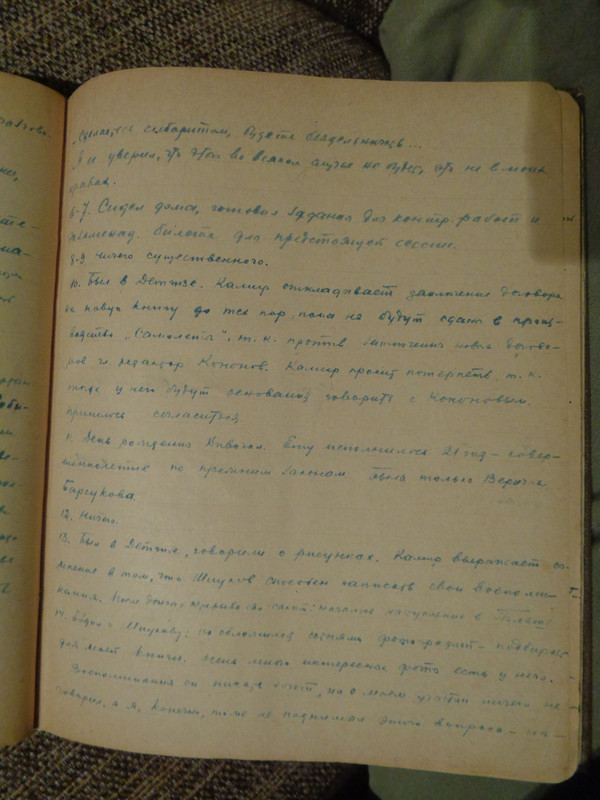 сделаетесь сибаритом, будете бездельничать...
Я и уверил, что этого во всяком случае не будет, это не в моих
правилах.
6-7. Сидел дома, готовил задания для контр. работ и
экзаменац. билеты для предстоящей сессии.
8-9 Ничего существенного.
10. Был в Детгизе. Камир откладывает заключение договора
на новую книгу до тех пор, пока не будут сданы в произ-
водство "Самолеты", т. к. против заключения новых догово-
ров гл. редактор Кононов. Камир просит потерпеть, т. к.
тогда у него будут основания говорить с Кононовым.
Пришлось согласиться
11. День рождения Вивочки. Ему исполнился 21 год - совер-
шеннолетие по прежним законам. Была только Верочка
Барсукова.
12. Ничего.
13. Был в Детгизе, говорили о рисунках. Камир выражает со-
мнение в том, что Шиуков способен написать свои воспоми-
нания. После долгого перерыва
14. Ездил к Шиукову; он обложился сотнями фотографий - подбирает
для моей книги. Очень много интересных фото есть у него.
Воспоминания он писать хочет, но о моем участии ничего не
говорил, а я, конечно, тоже не поднимал этого вопроса -